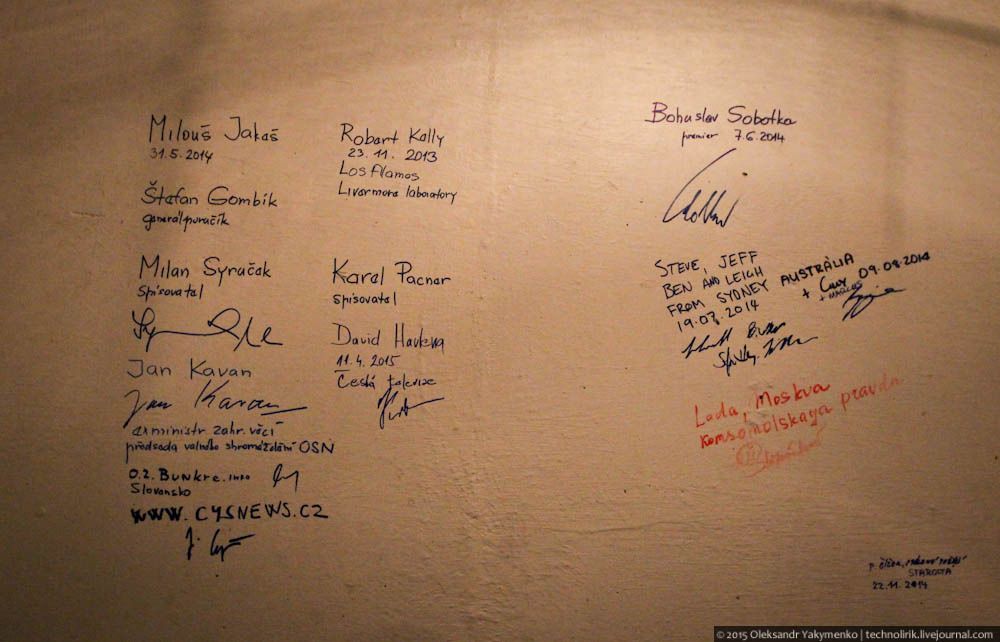 Milouš Jakeš
31.5.2014
Štefan Gombík
generálporučík
Milan Syruček
Spisovatel
Jan Kavan
Jan Kavan
exministr zahr. věcí
předseda valného shromáždění OSN
O.Z. Bunkre.info
Slovensko
WWW.CYSNEWS.CZ
Robert Kelly
23. 11. 2013
Los Alamos
Livermore laboratory
Karel Pacner
spisovatel
David Havlena
11.4.2015
Česká televize
Bohuslav Sobotka
premier 7.6.2014
STEVE, JEFF
BEN AND LEIGH
FROM SYDNEY AUSTRÀLIA
19.07.2014
+ 09.08.2014
+ MARCUS
Lada, Moskva
Komsomolskaya pravda
STAROSTA
22.11.2014
© 2015 Oleksandr Yakymenko | technolirik.livejournal.com